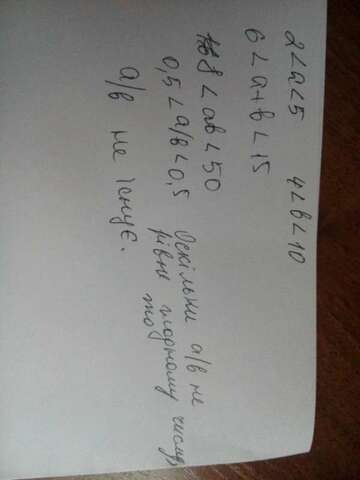 2<a<5 4<b<10
6<a+b<15
8<ab<50
0,5<a/b<0,5 Оскільки a/b не
рівне жодному числу
то
a/b не існує.